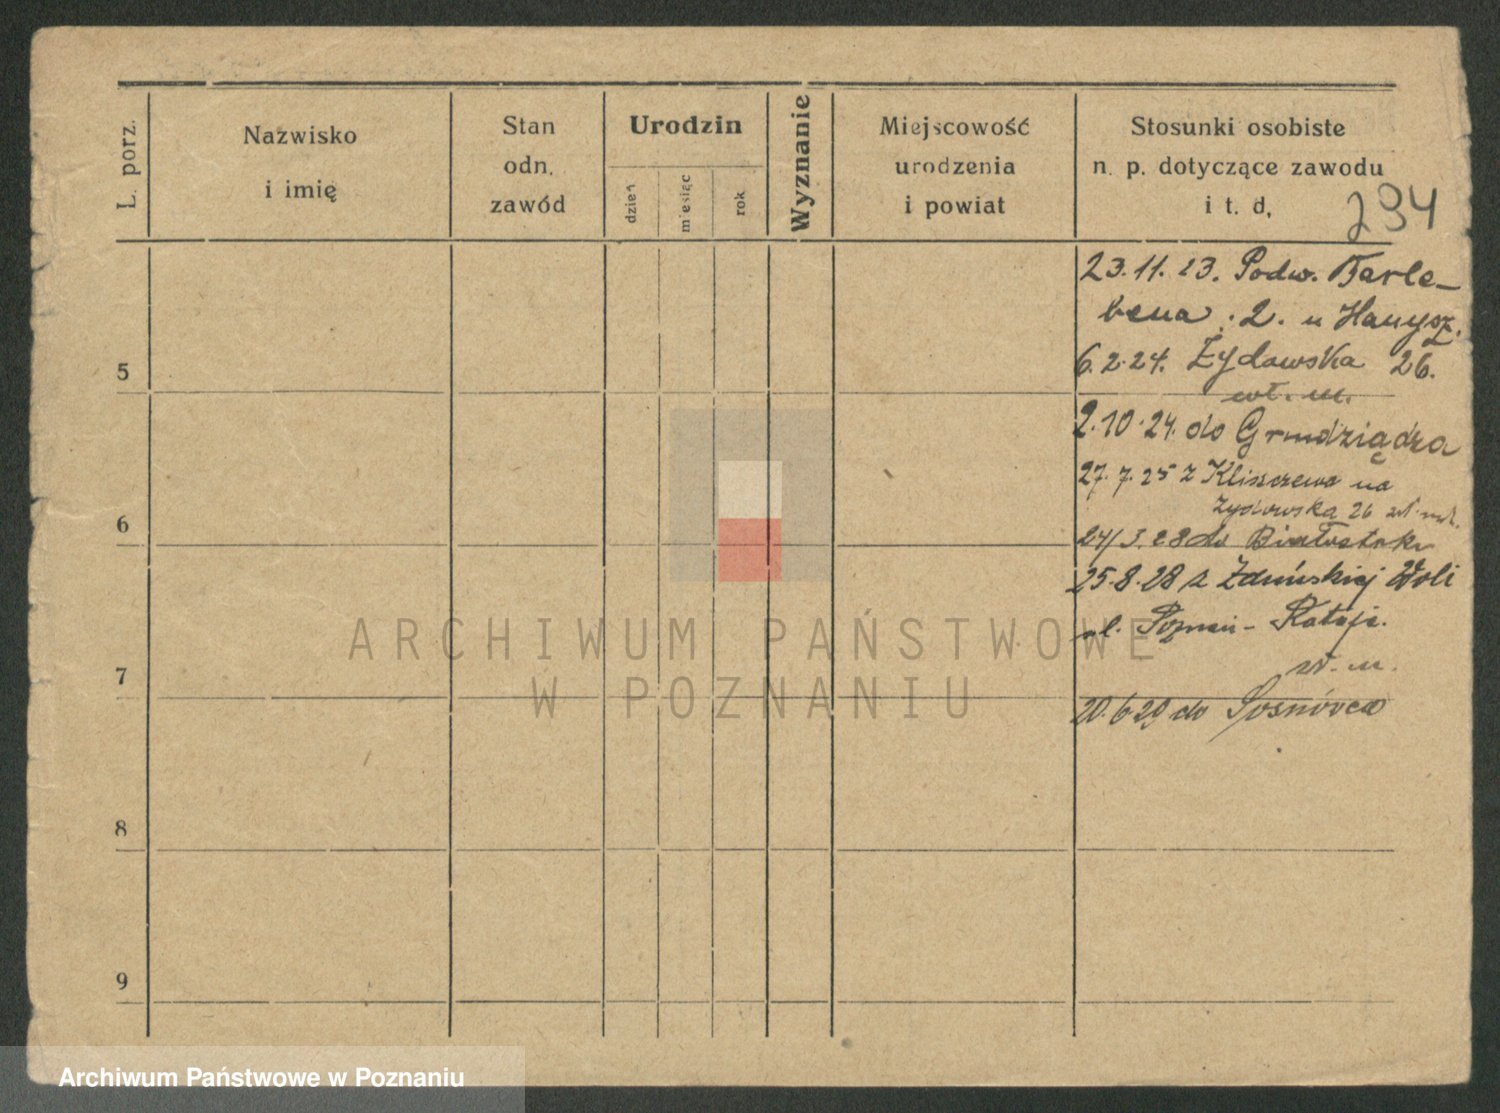 L. porz.
Nazwisko
i imię
Stan
odn.
zawód
Urodzin
dzień
miesiąc
rok
Wyznanie
Miejscowość
urodzenia
i powiat
Stosunki osobiste
n. p. dotyczące zawodu
i t. d.
294
23.11.23. Podw. Barle-
bena 2. u Hanysz.
5
6.2.24. Żydowska 26.
wł. m.
2.10.24. do Grudziądza
27.7.25 z Kliszczewa na
6
Żydowska 26 wł. m.
24/3.28 do Białostoku
25.8.28 z Zduńskiej Woli
ul. Poznań - Rataje.
7
wł. m.
20.6 29 do Sosnówca
8
9
ARCHIWUM PAŃSTWOWE
W POZNANIU
Archiwum Państwowe w Poznaniu